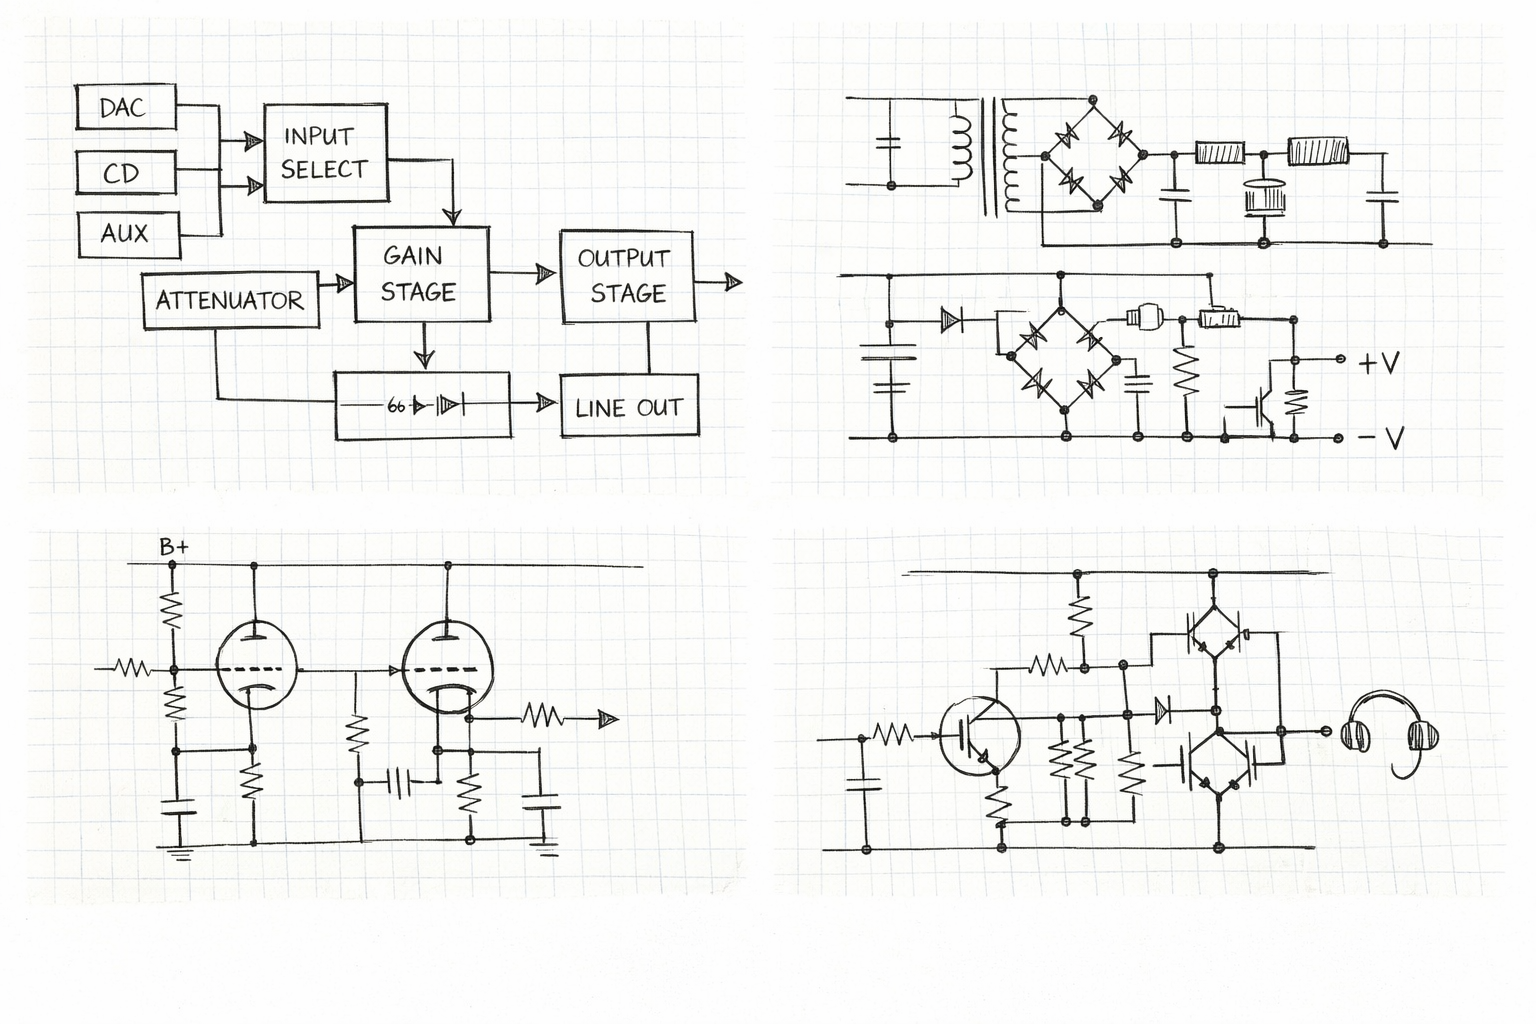 DAC
CD
AUX
INPUT
SELECT
ATTENUATOR
GAIN
STAGE
OUTPUT
STAGE
LINE OUT
+V
- V
B+